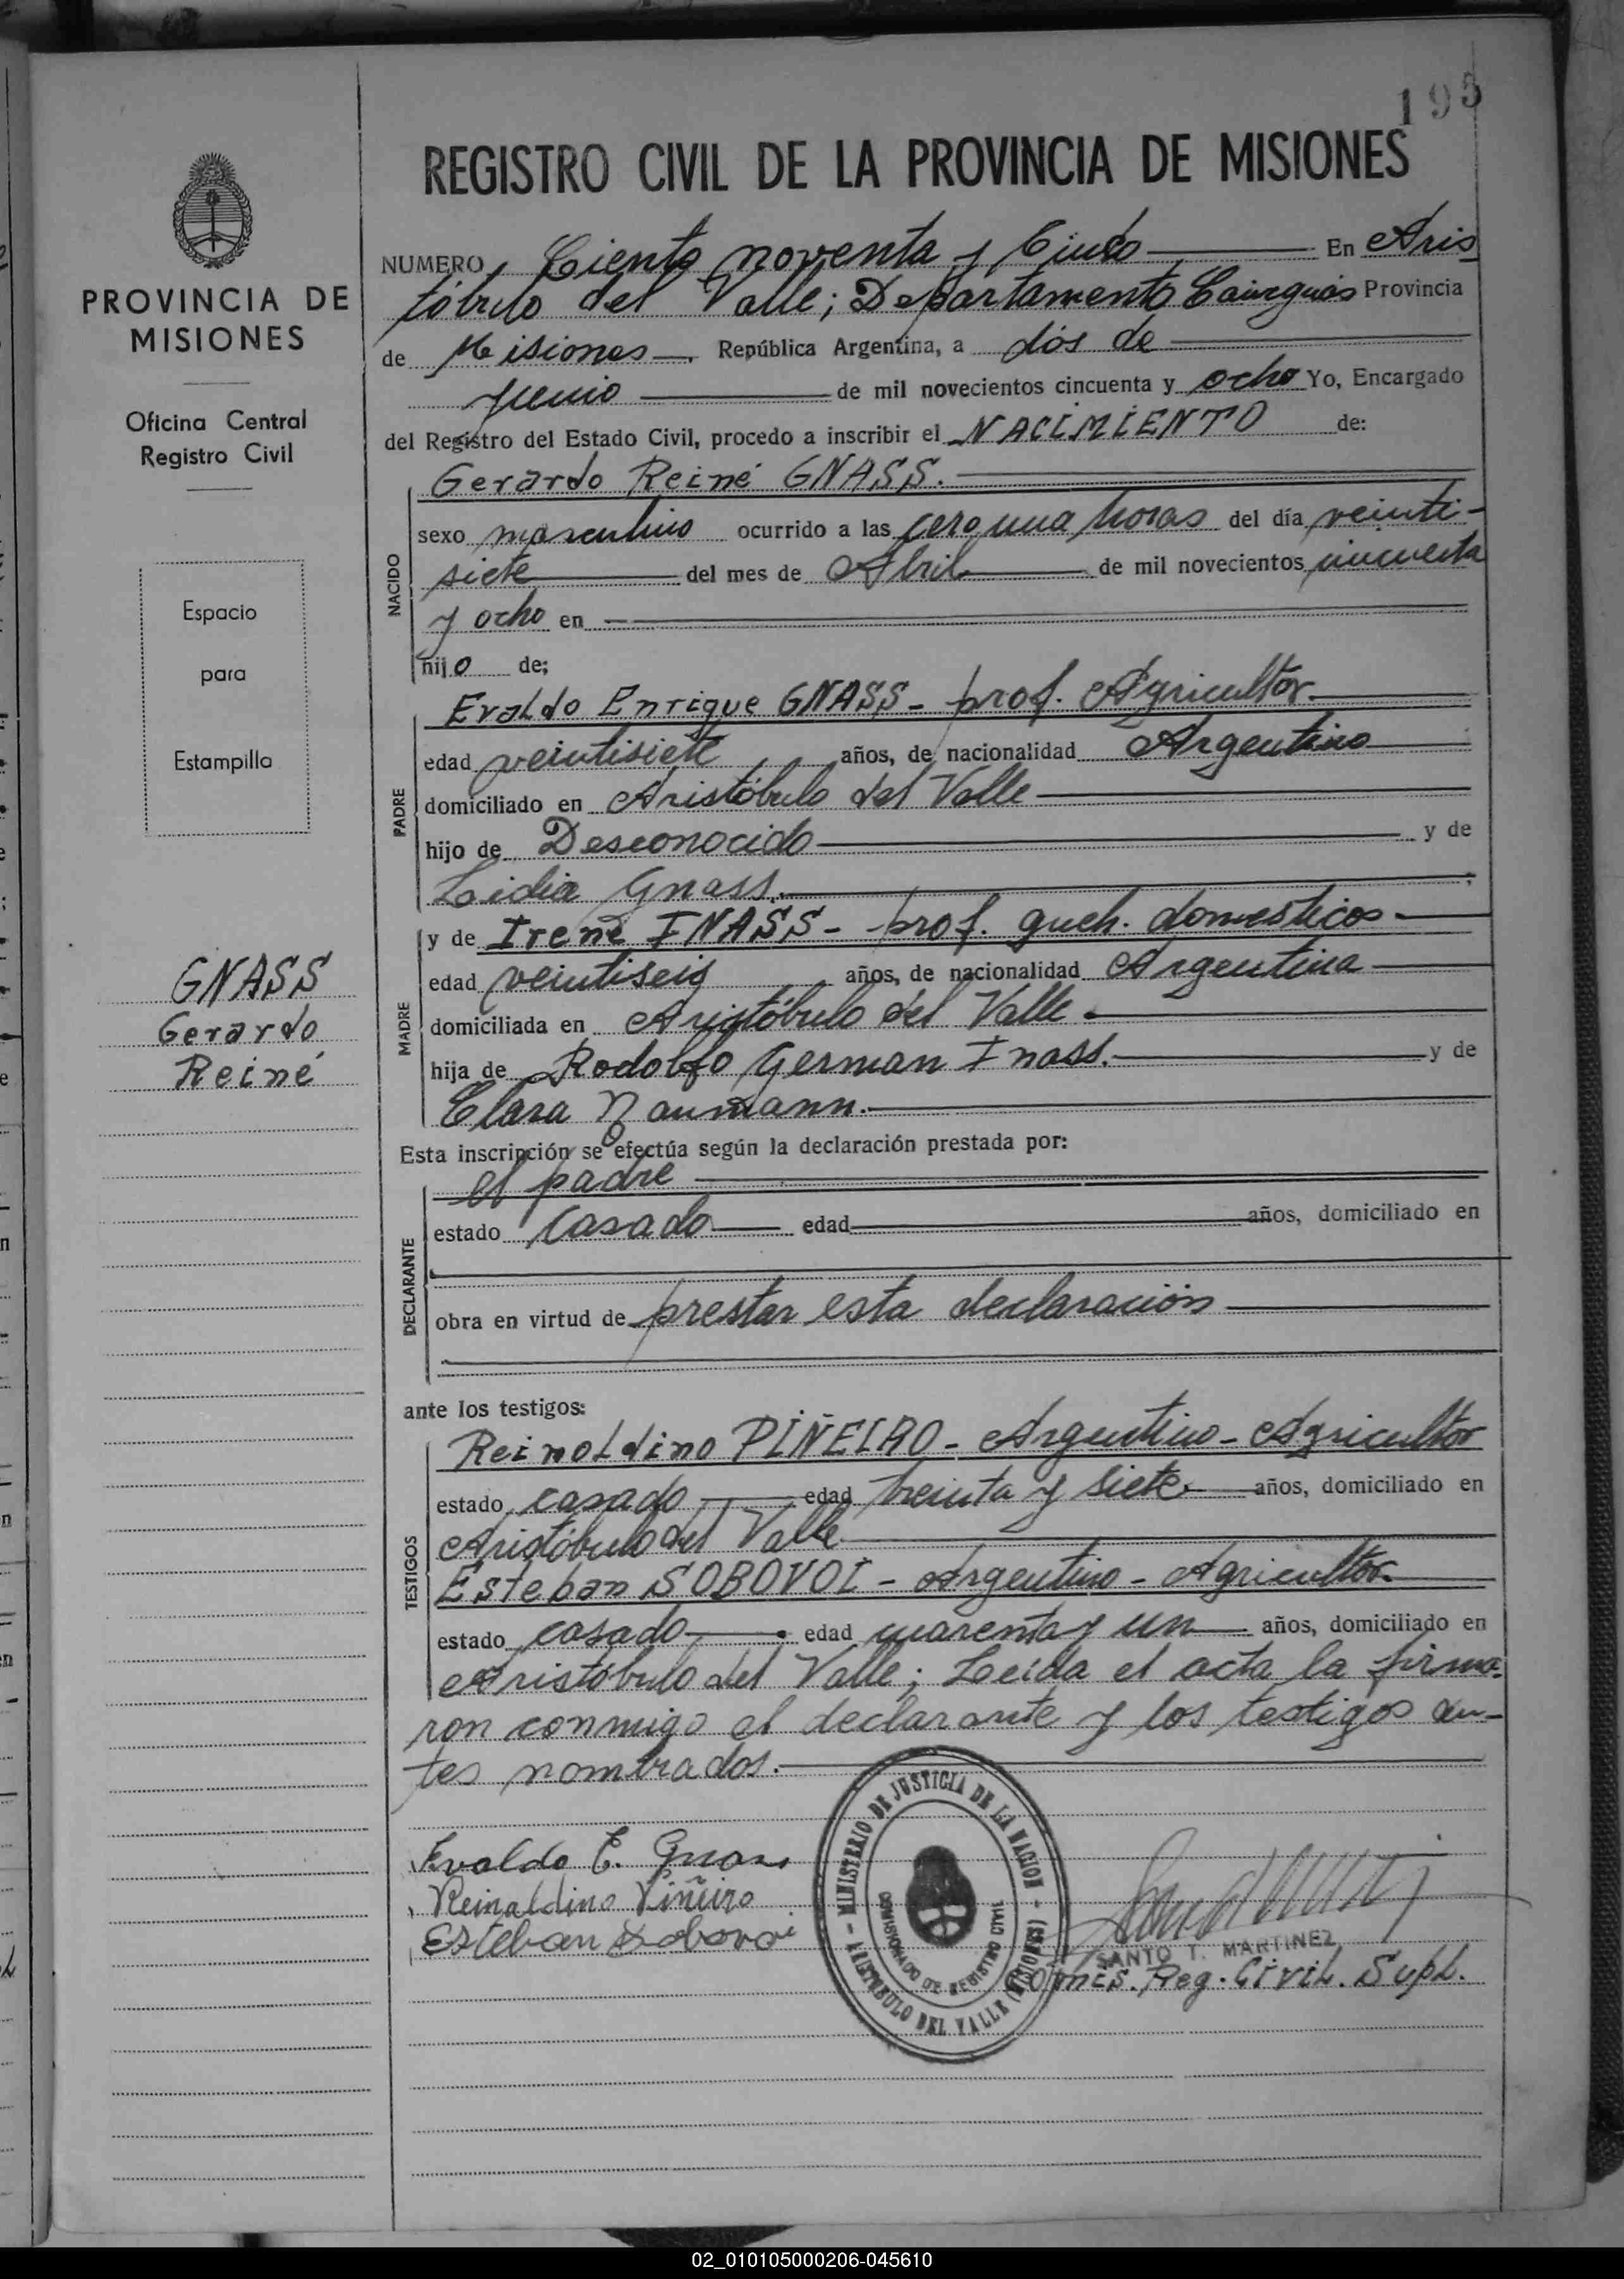 195
REGISTRO CIVIL DE LA PROVINCIA DE MISIONES
PROVINCIA DE
MISIONES
Oficina Central
Registro Civil
Espacio
para
Estampilla
GNASS
Gerardo
Reiné
NUMERO Ciento noventa y Cinco En Aris
tóbulo del Valle; Departamento Cainguás Provincia
de Misiones, República Argentina, a dos de
Junio de mil novecientos cincuenta y ocho Yo, Encargado
del Registro del Estado Civil, procedo a inscribir el NACIMIENTO de:
NACIDO
Gerardo Reiné GNASS.
sexo masculino ocurrido a las cero una horas del día veinti-
siete del mes de Abril de mil novecientos cincuenta
y ocho en
hijo de;
PADRE
Evaldo Enrique GNASS - prof. Agricultor
edad veintisiete años, de nacionalidad Argentino
domiciliado en Aristóbulo del Valle
hijo de Desconocido y de
Lidia Gnass.
MADRE
y de Irene INASS - prof. queh. domesticos
edad veintiseis años, de nacionalidad Argentina
domiciliada en Aristóbulo del Valle
hija de Rodolfo German Inass. y de
Clara Naumann.
Esta inscripción se efectúa según la declaración prestada por:
DECLARANTE
el padre
estado Casado edad años, domiciliado en
obra en virtud de prestar esta declaración
ante los testigos:
TESTIGOS
Reinoldino PIÑEIRO - Argentino - Agricultor
estado casado edad treinta y siete años, domiciliado en
Aristóbulo del Valle
Esteban SOBOVOI - Argentino - Agricultor
estado casado edad cuarenta y un años, domiciliado en
Aristóbulo del Valle; Leída el acta la firma-
ron conmigo el declarante y los testigos an-
tes nombrados.
Evaldo E. Gnass
Reinaldino Piñeiro
Esteban Sobovoi
MINISTERIO DE JUSTICIA DE LA NACION
ARISTOBULO DEL VALLE (MISIONES)
COMISIONADO DE REGISTRO CIVIL
SANTO T. MARTINEZ
Comis. Reg. Civil. Supl.
02_010105000206-045610